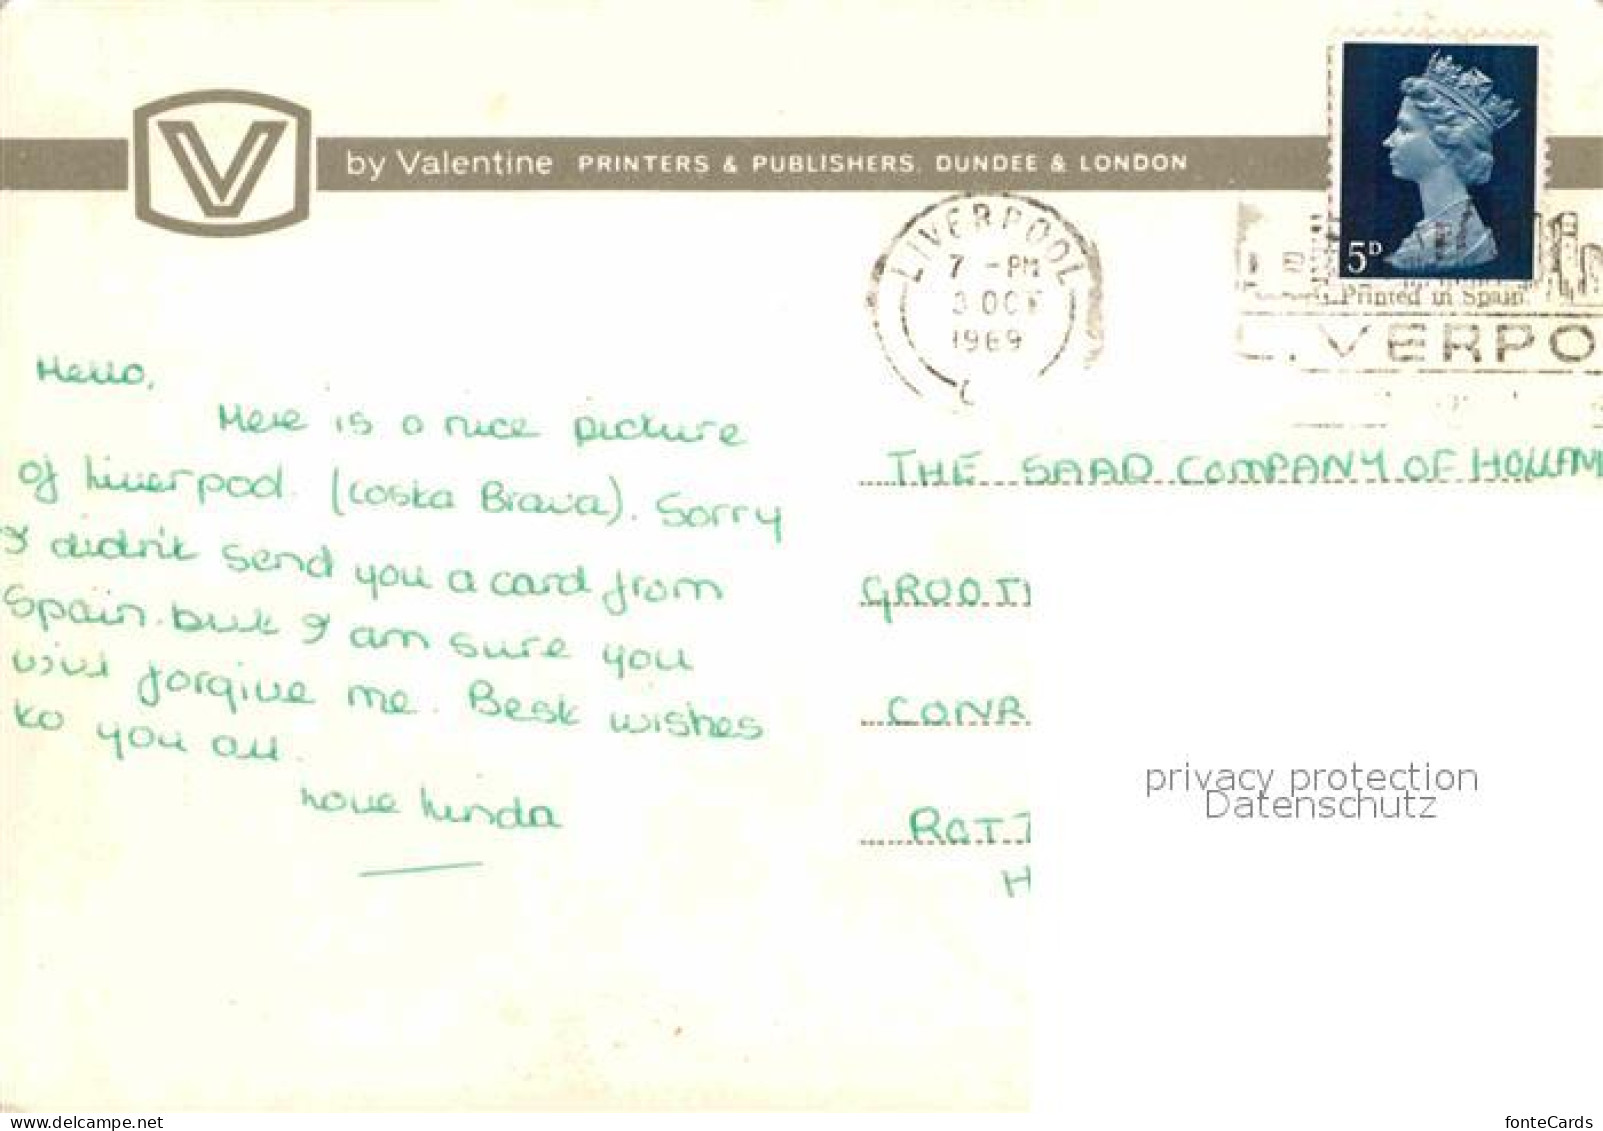 V by Valentine PRINTERS & PUBLISHERS, DUNDEE & LONDON
LIVERPOOL
7 - PM
3 OCT
1969
5D
Printed in Spain.
LIVERPO
Hello,
Here is a nice picture
of Liverpool. (Costa Brava). Sorry
I didn't send you a card from
Spain. but I am sure you
will forgive me. Best wishes
to you all.
Love Linda
THE SAAD COMPANY OF HOLLAN
GROOT
CONR
ROTT
H
privacy protection
Datenschutz
www.delcampe.net
fonteCards